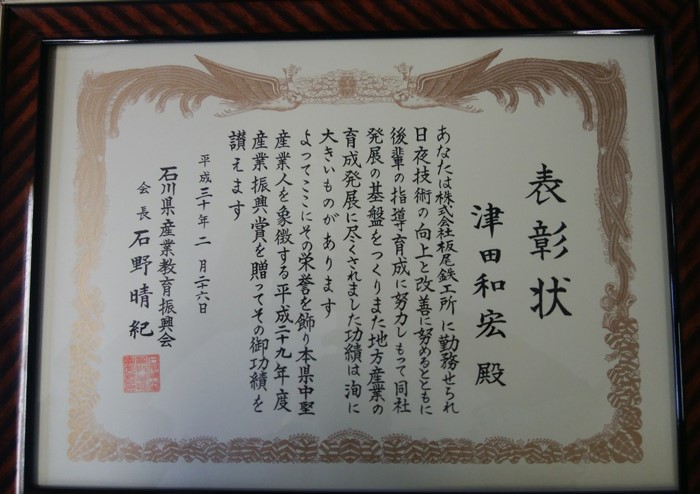 表彰状
津田和宏 殿
あなたは株式会社板尾鉄工所に勤務せられ
日夜技術の向上と改善に努めるとともに
後輩の指導育成に努力しもって同社
発展の基盤をつくりまた地方産業の
育成発展に尽くされました功績は洵に
大きいものがあります
よってここにその栄誉を飾り本県中堅
産業人を象徴する平成二十九年度
産業振興賞を贈ってその御功績を
讃えます
平成三十年二月二十六日
石川県産業教育振興会
会長 石野晴紀